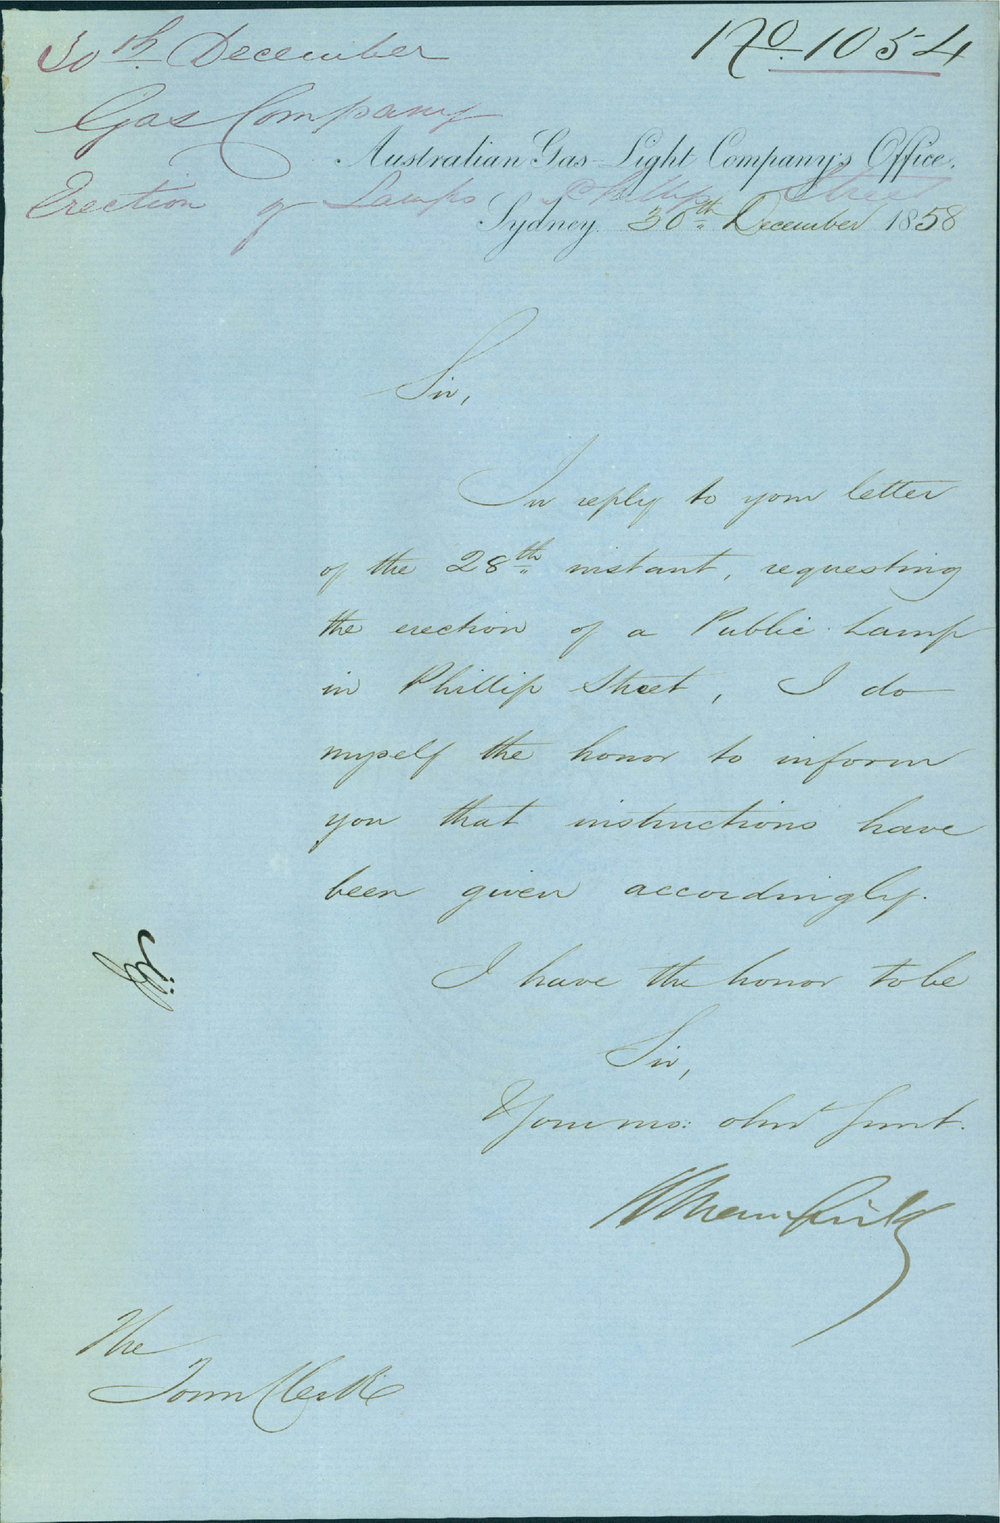 30th December
No. 1054
Gas Company
Australian Gas-Light Company's Office.
Erection of Lamps Phillip Street
Sydney. 30th December 1858
Sir,
In reply to your letter
of the 28th instant, requesting
the erection of a Public Lamp
in Phillip Street, I do
myself the honor to inform
you that instructions have
been given accordingly.
I have the honor to be
Sir,
Your mo: obdt Servt.
The
Town Clerk